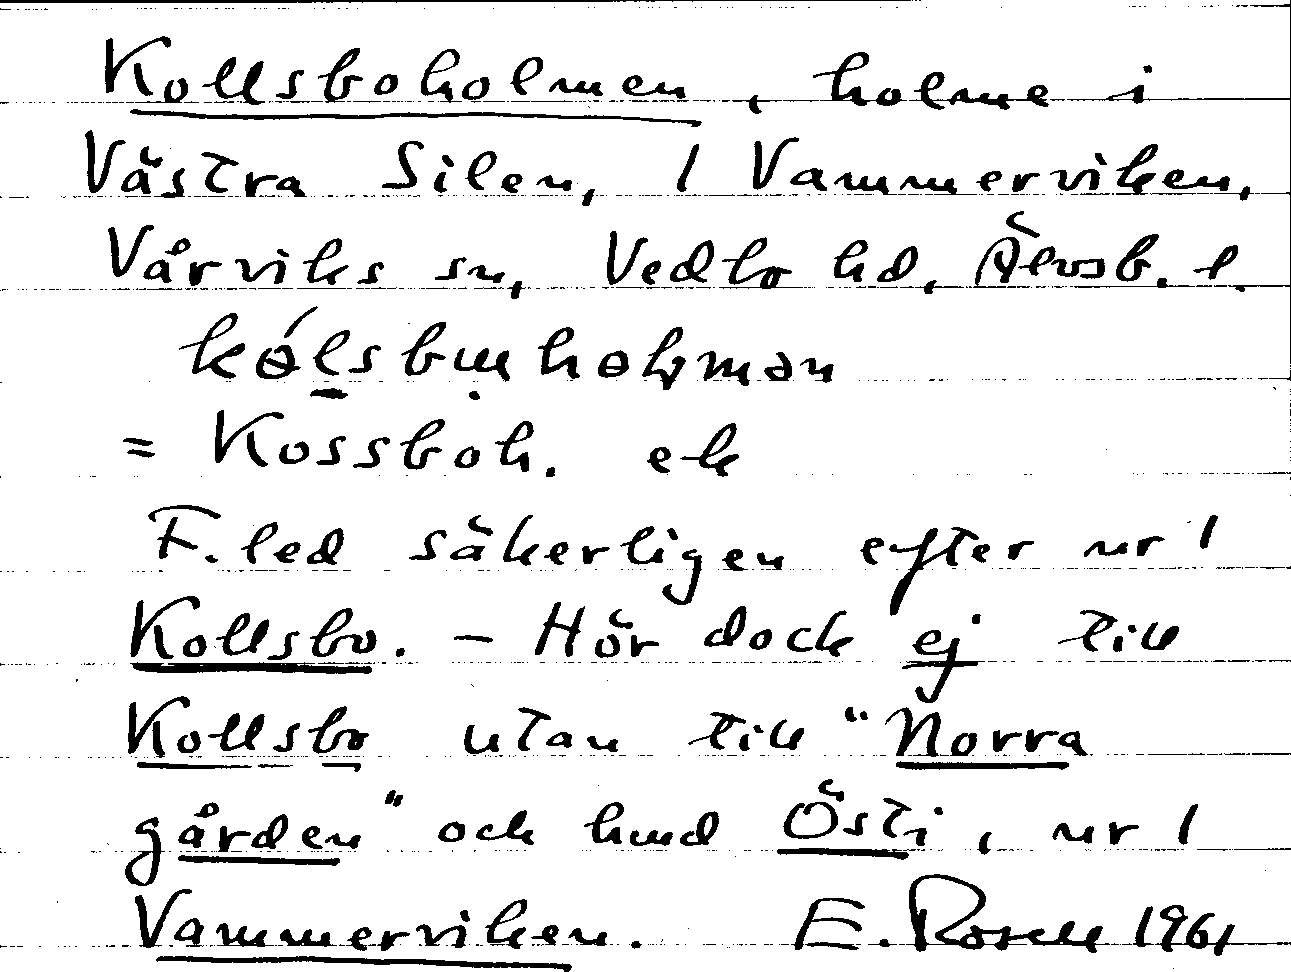 Kollsboholmen, holme i
Västra Silen, 1 Vammerviken,
Vårviks sn, Vedbo hd, Älvsb. l.
= Kossboh. ek
F.led säkerligen efter nr 1
Kollsbo. – Hör dock ej till
Kollsbo utan till "Norra
gården" och hmd Östi, nr 1
Vammerviken. E. Rosell 1961